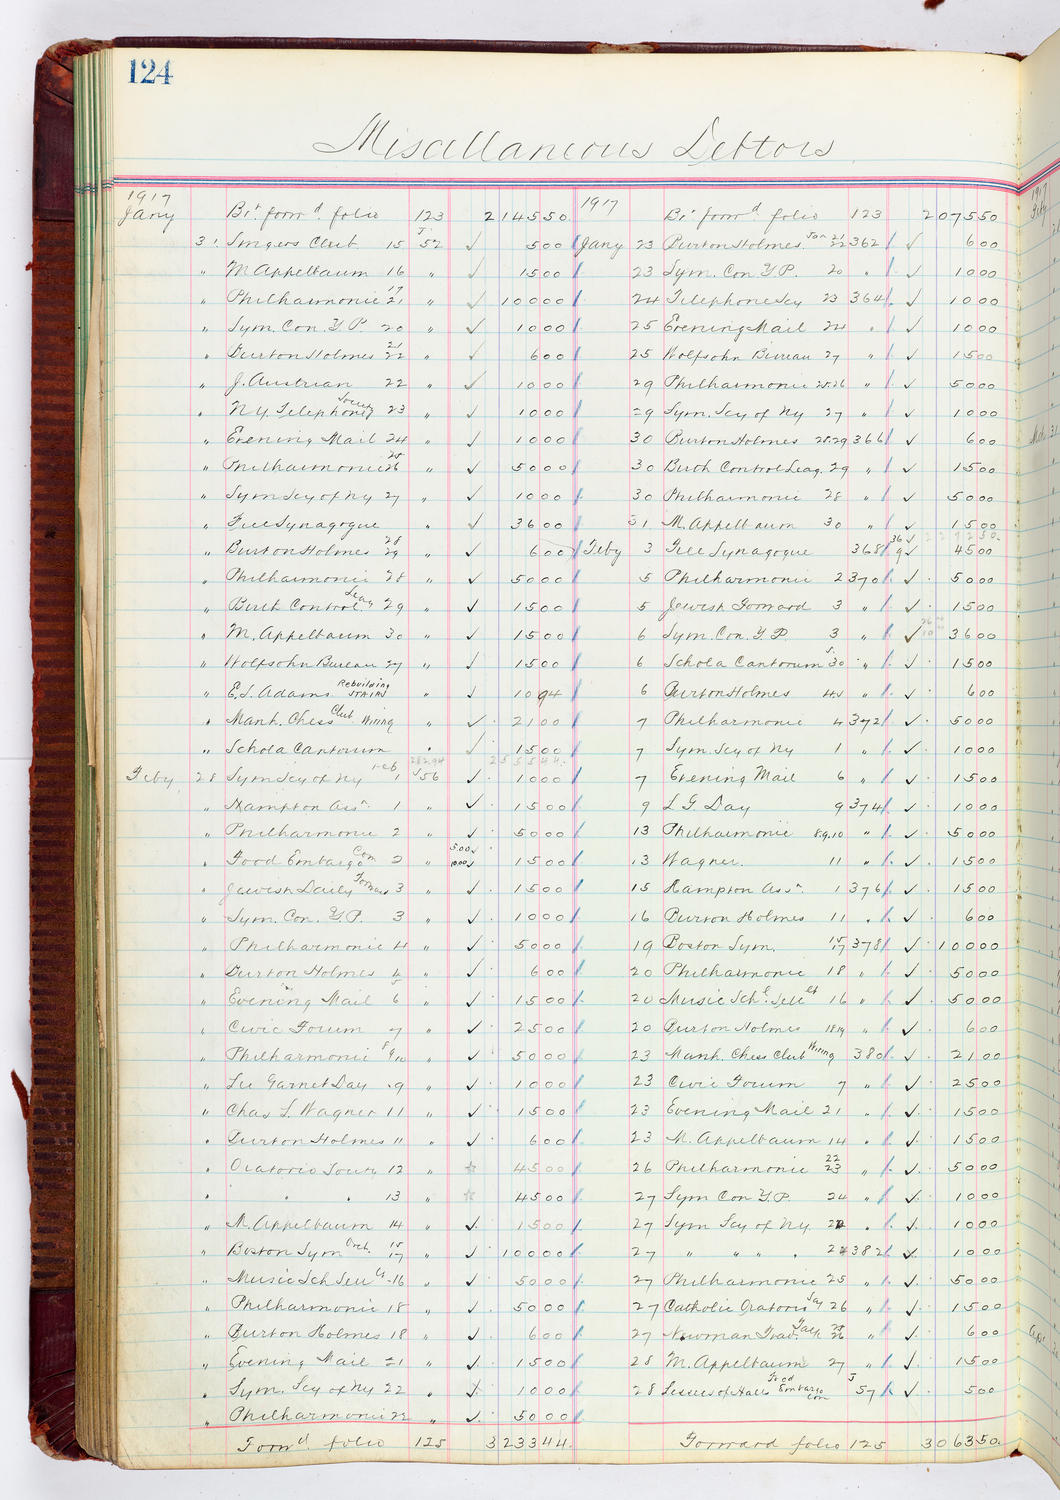 124
Miscellaneous Debtors
1917
Jany Bt. forwd. folio 123 2145 50
31 Singers Club 15 J 52 ✓ 5 00
" M. Appelbaum 16 " ✓ 15 00
" Philharmonic 17 21 " ✓ 100 00
" Sym. Con. Y.P. 20 " ✓ 10 00
" Burton Holmes 21 22 " ✓ 6 00
" J. Austrian 22 " ✓ 10 00
" N.Y. Telephone Socey 23 " ✓ 10 00
" Evening Mail 24 " ✓ 10 00
" Philharmonic 25 26 " ✓ 50 00
" Sym Scy of Ny 27 " ✓ 10 00
" Free Synagogue " ✓ 36 00
" Burton Holmes 28 29 " ✓ 6 00
" Philharmonic 28 " ✓ 50 00
" Birth Control Leag 29 " ✓ 15 00
" M. Appelbaum 30 " ✓ 15 00
" Wolfsohn Bureau 27 " ✓ 15 00
" E.S. Adams Rebuilding Stairs " ✓ 10 94
" Manh. Chess Club Wiring " ✓ 21 00
" Schola Cantorum " ✓ 15 00
Feby 28 Sym Scy of Ny Feb 1 J 56 ✓ 10 00
" Hampton Assn. 1 " ✓ 15 00
" Philharmonic 2 " ✓ 50 00
" Food Embargo Com 2 " 500 ✓ 1000 ✓ 15 00
" Jewish Daily Forward 3 " ✓ 15 00
" Sym. Con. Y.P. 3 " ✓ 10 00
" Philharmonic 4 " ✓ 50 00
" Burton Holmes 4 5 " ✓ 6 00
" Evening Mail 6 " ✓ 15 00
" Civic Forum 7 " ✓ 25 00
" Philharmonic 8 9 10 " ✓ 50 00
" Lee Garnet Day 9 " ✓ 10 00
" Chas L. Wagner 11 " ✓ 15 00
" Burton Holmes 11 " ✓ 6 00
" Oratorio Socety 12 " 45 00
" " " 13 " 45 00
" M. Appelbaum 14 " ✓ 15 00
" Boston Sym Orch. 15 17 " ✓ 100 00
" Music Sch Sett 16 " ✓ 50 00
" Philharmonic 18 " ✓ 50 00
" Burton Holmes 18 " ✓ 6 00
" Evening Mail 21 " ✓ 15 00
" Sym. Scy of Ny 22 " ✓ 10 00
" Philharmonic 22 " ✓ 50 00
Forwd. folio 125 3233 44
1917
Bt. forwd. folio 123 2075 50
Jany 23 Burton Holmes Jan 21 22 362 ✓ 6 00
23 Sym. Con Y.P. 20 " ✓ 10 00
24 Telephone Scy 23 364 ✓ 10 00
25 Evening Mail 24 " ✓ 10 00
25 Wolfsohn Bureau 27 " ✓ 15 00
29 Philharmonic 25.26 " ✓ 50 00
29 Sym. Scy of Ny 27 " ✓ 10 00
30 Burton Holmes 28.29 366 ✓ 6 00
30 Birth Control Leag. 29 " ✓ 15 00
30 Philharmonic 28 " ✓ 50 00
31 M. Appelbaum 30 " ✓ 15 00
Feby 3 Free Synagogue 368 36 ✓ 9 ✓ 45 00
5 Philharmonic 2 370 ✓ 50 00
5 Jewish Forward 3 " ✓ 15 00
6 Sym. Con. Y.P. 3 " ✓ 36 00
6 Schola Cantorum 30 " ✓ 15 00
6 Burton Holmes 4.5 " ✓ 6 00
7 Philharmonic 4 372 ✓ 50 00
7 Sym. Scy of Ny 1 " ✓ 10 00
7 Evening Mail 6 " ✓ 15 00
9 L G. Day 9 374 ✓ 10 00
13 Philharmonic 8.9.10 " ✓ 50 00
13 Wagner. 11 " ✓ 15 00
15 Hampton Assn. 1 376 ✓ 15 00
16 Burton Holmes 11 " ✓ 6 00
19 Boston Sym. 15 17 378 ✓ 100 00
20 Philharmonic 18 " ✓ 50 00
20 Music Schl. Settlt 16 " ✓ 50 00
20 Burton Holmes 18 19 " ✓ 6 00
23 Manh. Chess Club Wiring 380 ✓ 21 00
23 Civic Forum 7 " ✓ 25 00
23 Evening Mail 21 " ✓ 15 00
23 M. Appelbaum 14 " ✓ 15 00
26 Philharmonic 22 23 " ✓ 50 00
27 Sym Con Y.P. 24 " ✓ 10 00
27 Sym Scy of Ny 22 " ✓ 10 00
27 " " " " 24 382 ✓ 10 00
27 Philharmonic 25 " ✓ 50 00
27 Catholic Oratorio Scy 26 " ✓ 15 00
27 Newman Trav. Talk 25 26 " ✓ 6 00
28 M. Appelbaum 27 " ✓ 15 00
28 Lessees of Hall Food Embargo Com J 57 ✓ 5 00
Forward folio 125 3063 50